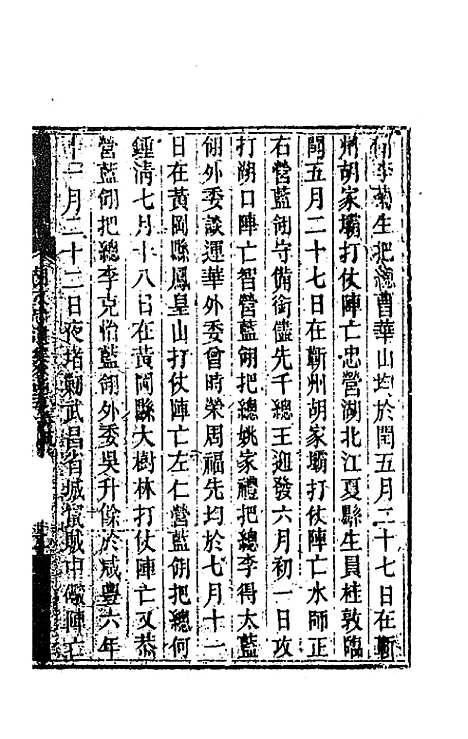 翎李菊生把總曹華山均於閏五月二十七日在蘄
州胡家壩打仗陣亡忠營湖北江夏縣生員桂敦臨
閏五月二十七日在蘄州胡家壩打仗陣亡水師正
右營藍翎守備銜儘先千總王迎發六月初一日攻
打湖口陣亡智營藍翎把總姚家禮把總李得太藍
翎外委談運華外委曾時榮周福先均於七月十一
日在黃岡縣鳳皇山打仗陣亡左仁營藍翎把總何
鍾淸七月十八日在黃岡縣大樹林打仗陣亡又恭
營藍翎把總李克怡藍翎外委吳升餘於咸豐六年
十一月二十二日夜堵勦武昌省城竄賊中礮陣亡